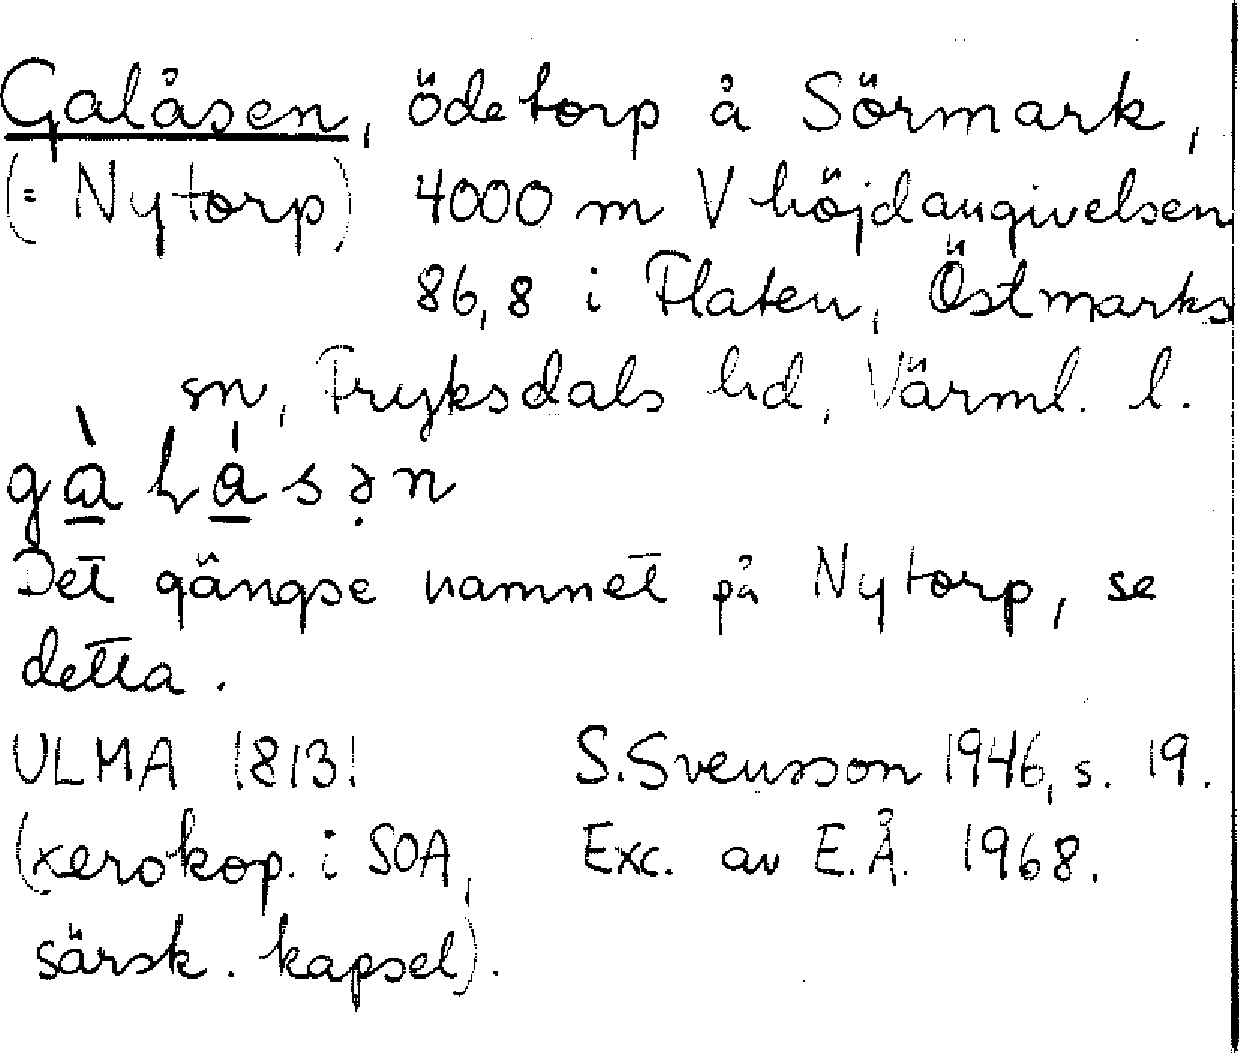 Galåsen, ödetorp å Sörmark,
(= Nytorp) 4000 m V höjdangivelsen
86,8 i Flaten, Östmarks
sn, Fryksdals hd, Värml. l.
Det gängse namnet på Nytorp, se
detta.
ULMA 18131 S. Svensson 1946, s. 19.
(xerokop. i SOA, Exc. av E.Å. 1968.
särsk. kapsel).